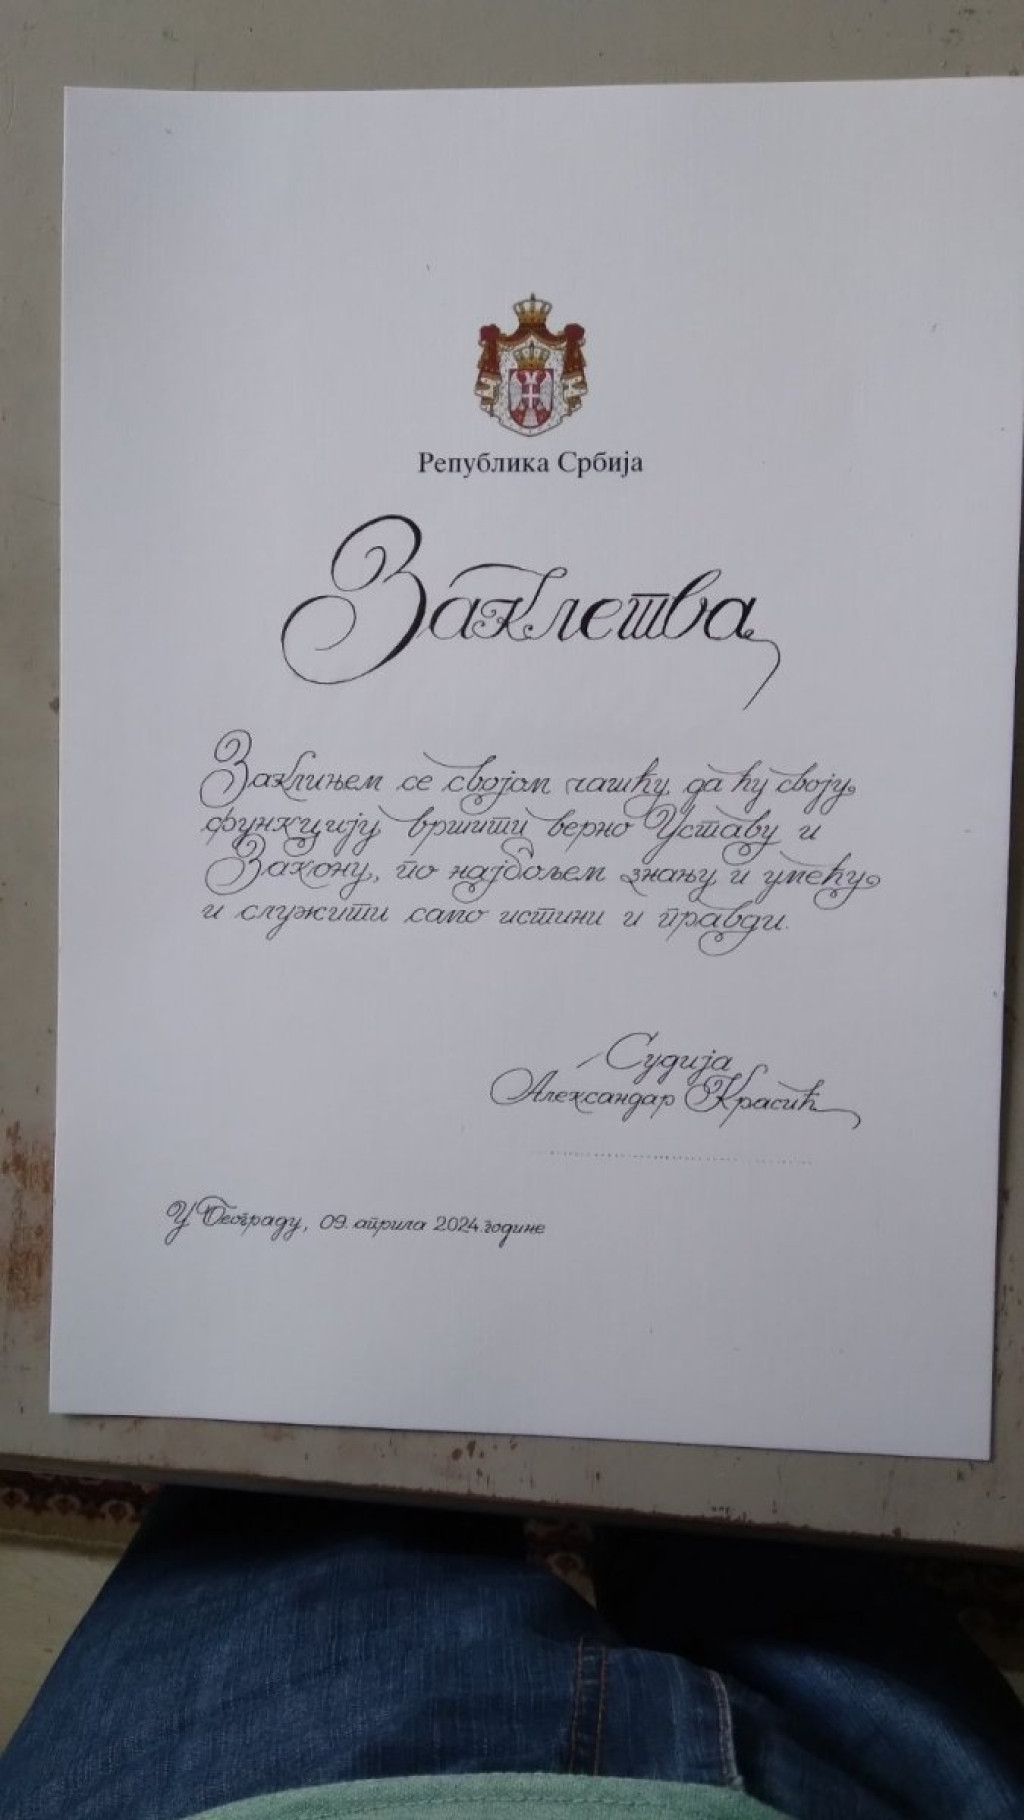 Република Србија
Заклетва
Заклињем се својом чашћу, да ћу своју
функцију вршити верно Уставу и
Закону, по најбољем знању и умећу
и служити само истини и правди.
Судија
Александар Красић
У Београду, 09. априла 2024. године